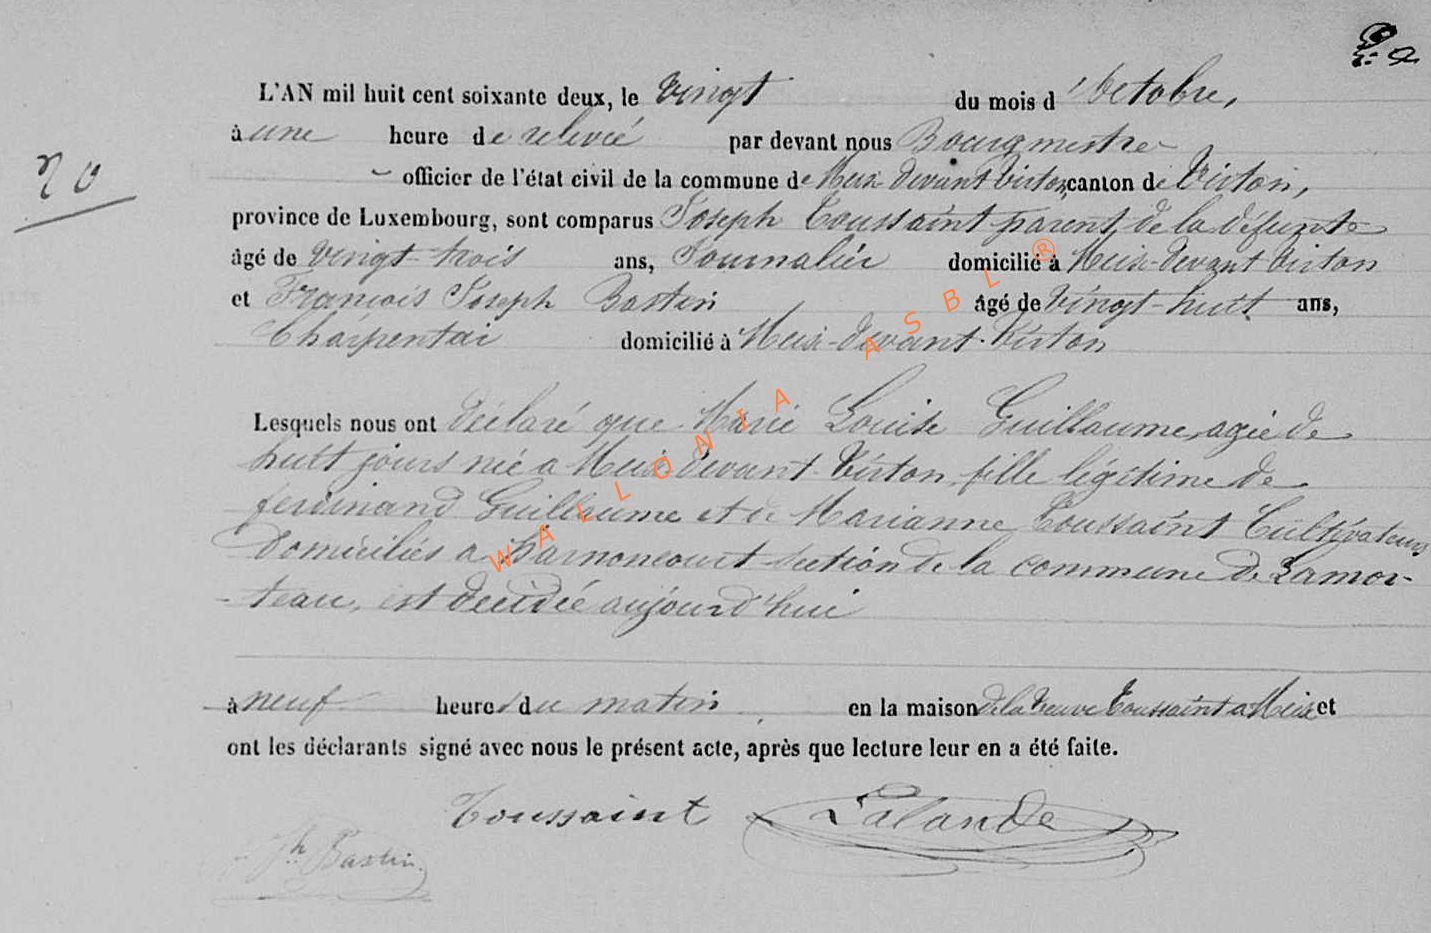 L'AN mil huit cent soixante deux, le vingt du mois d'Octobre,
à une heure de relevée par devant nous Bourgmestre
20
officier de l'état civil de la commune de Meix devant Virton, canton de Virton,
province de Luxembourg, sont comparus Joseph Toussaint parent de la défunte
âgé de vingt-trois ans, Journalier domicilié à Meix-devant Virton
et François Joseph Bastin âgé de vingt-huit ans,
Charpentier domicilié à Meix-devant-Virton
Lesquels nous ont déclaré que Marie Louise Guillaume, agée de
huit jours née a Meix-devant-Virton, fille légitime de
ferdinand Guillaume et de Marianne Toussaint Cultivateurs
Domiciliés a Harnoncourt section de la commune de Lamor-
teau, est décédée aujourd'hui
à neuf heures du matin en la maison de la veuve Toussaint a Meix et
ont les déclarants signé avec nous le présent acte, après que lecture leur en a été faite.
Toussaint Lalande
Jh Bastin
WALLONIA ASBL ®